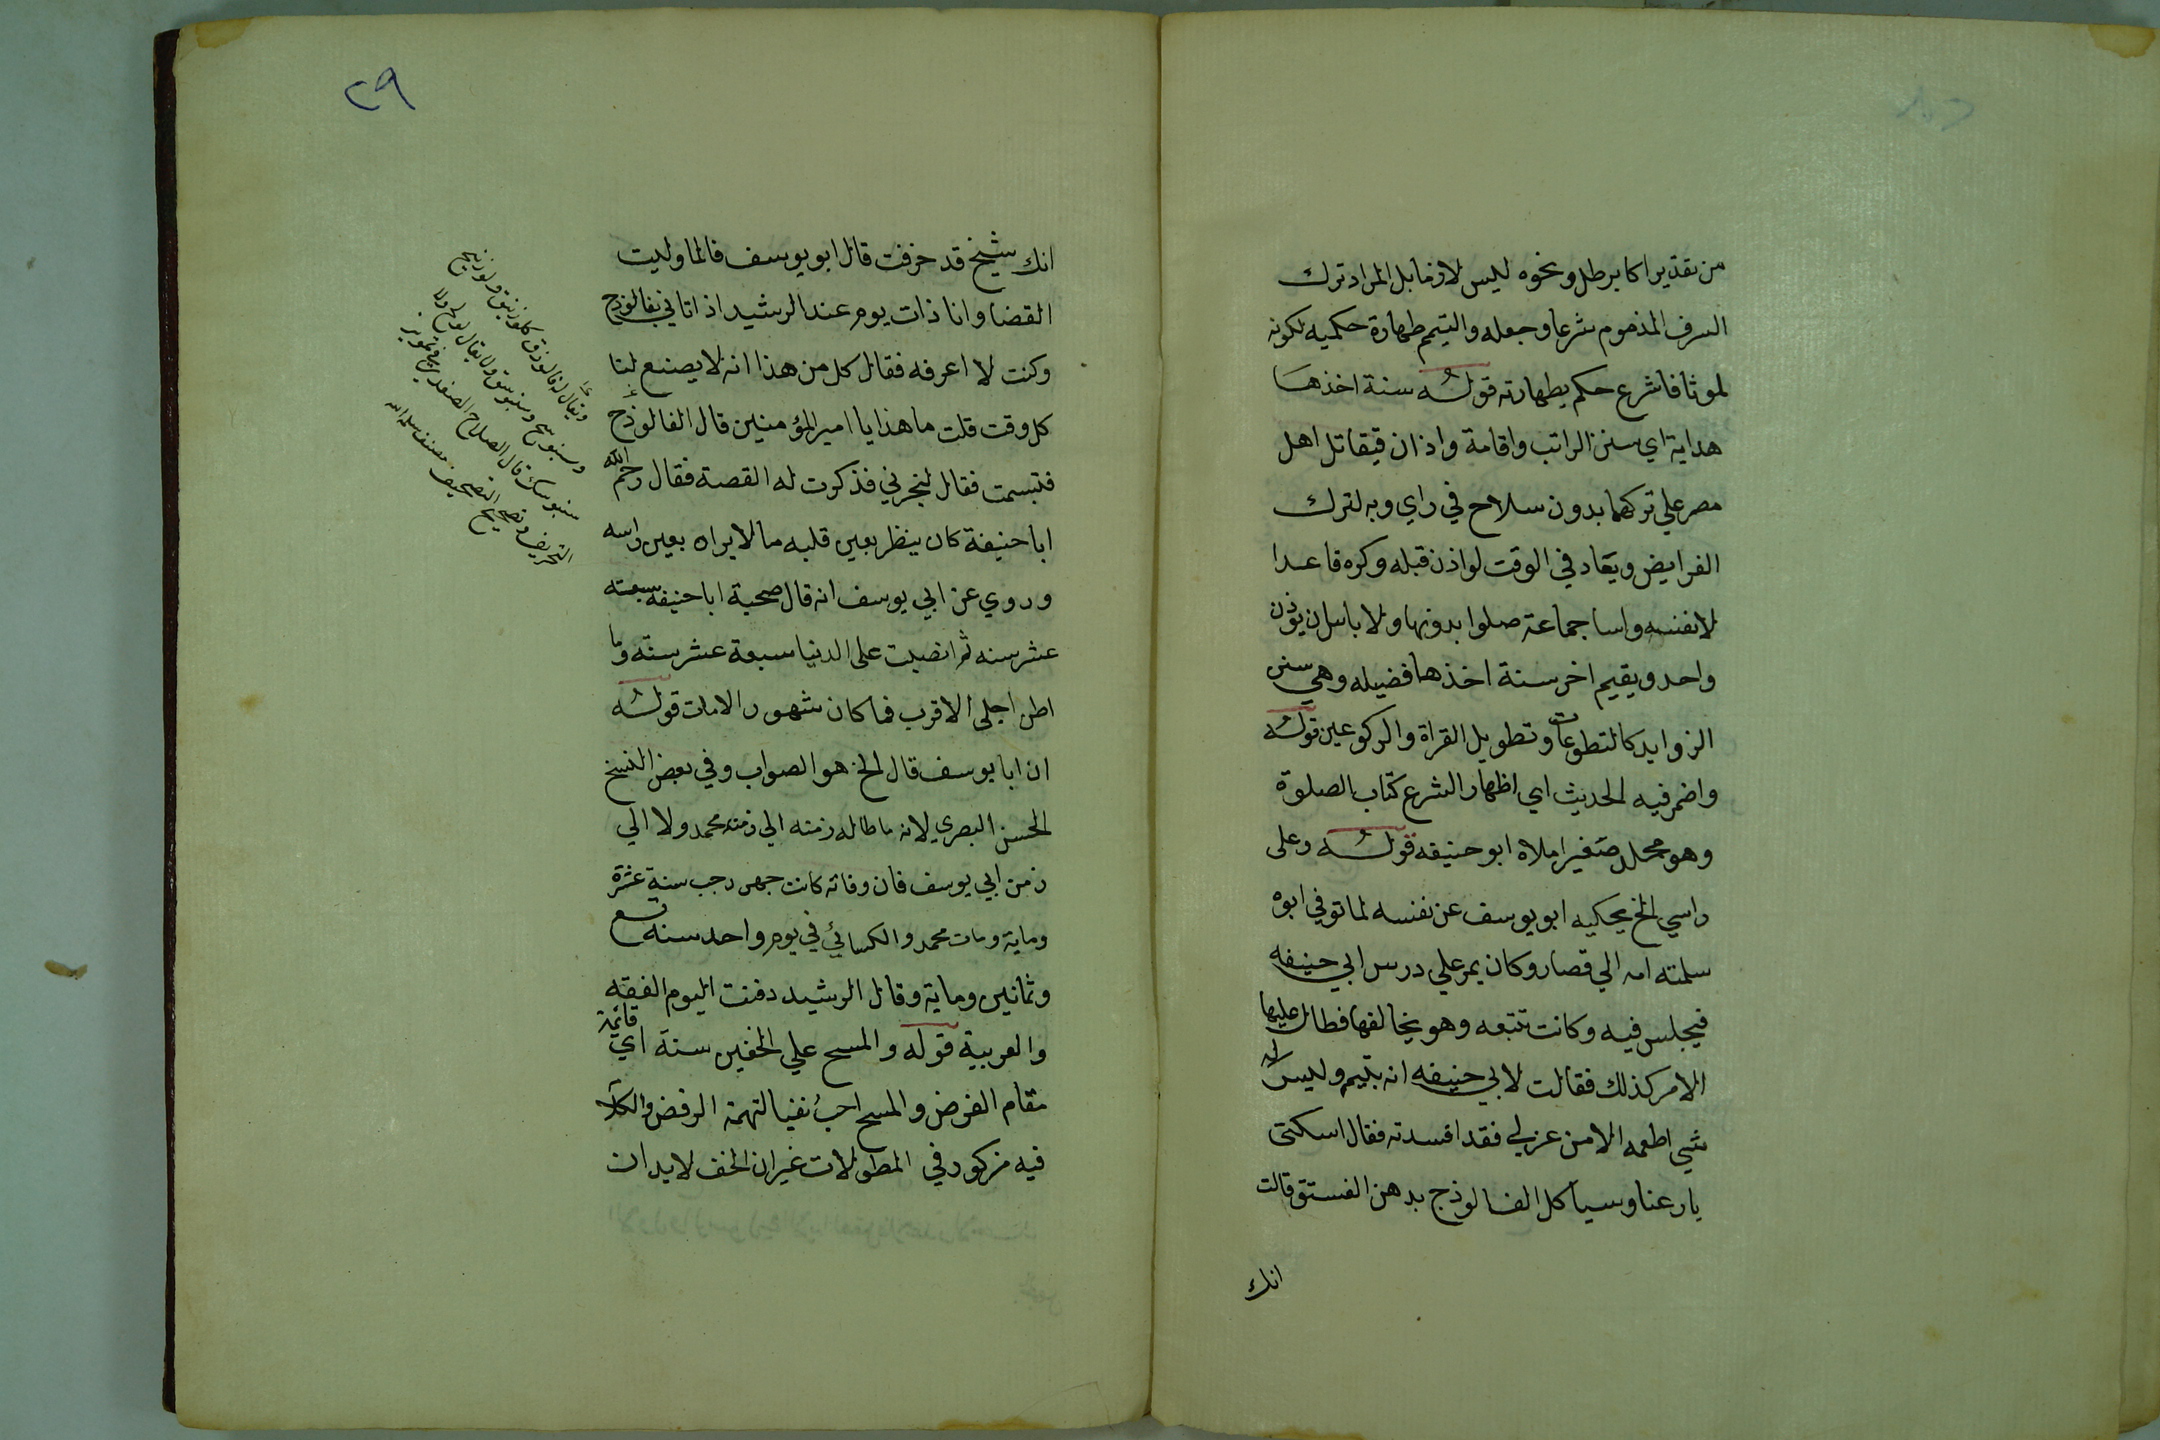 من تقديرا كابرطل ونحوه ليس لازما بل المراد ترك
السرف المذموم شرعا وجعله والتيمم طهارة حكميه لكونه
لموثا فاشرع حكم بطهارته قوله سنة اخذها
هداية اي سنن الراتب واقامة واذان فيقاتل اهل
مصر علي تركهما بدون سلاح في راي وبه لترك
الفرايض ويعاد في الوقت لو اذن قبله وكره قاعدا
لا لنفسه واسا جماعة صلوا بدونها ولا باس ان يوذن
واحد ويقيم اخر سنة اخذها فضيله وهي سنن
الزوايد كالتطوعات وتطويل القراة والركوعين قوله
واضمر فيه الحديث اي اظهار الشرع كتاب الصلوة
وهو مجلد صغير املاه ابو حنيفه قوله وعلى
راسي الخ يحكيه ابو يوسف عن نفسه لما توفي ابوه
سلمته امه الي قصار وكان يمر علي درس ابي حنيفه
فيجلس فيه وكانت تتبعه وهو يخالفها فطال عليها
الامر كذلك فقالت لابي حنيفه انه يتيم وليس له
شي اطعمه الا من غزلي فقد افسدته فقال اسكتي
يا رعنا وسيأكل الفالوذج بدهن الفستق قالت
انك
٢٩
انك شيخ قد خرفت قال ابو يوسف فلما وليت
القضا وانا ذات يوم عند الرشيد اذ اتاني بفالوذج
وكنت لا اعرفه فقال كل من هذا انه لا يصنع لنا
كل وقت قلت ما هذا يا امير المؤمنين قال الفالوذج
فتبسمت فقال لتخبرني فذكرت له القصة فقال رحم الله
ابا حنيفة كان ينظر بعين قلبه ما لا يراه بعين راسه
وروي عن ابي يوسف انه قال صحبة ابا حنيفه سبعته
عشر سنه ثم انصبت على الدنيا سبعة عشر سنة وما
اظن اجلى الا قرب فما كان شهور الا مات قوله
ان ابا يوسف قال الخ هو الصواب وفي بعض النسخ
الحسن البصري لانه ما طال له زمنه الي زمنه محمد ولا الي
زمن ابي يوسف فان وفاته كانت رجب سنة عشرة
وماية ومات محمد والكسائي في يوم واحد سنه تسع
وثمانين وماية وقال الرشيد دفنت اليوم الفقه
والعربية قوله والمسح علي الخفين سنة اي قائمة
مقام الفرض والمسح احب نفيا لتهمة الرفض والكلام
فيه مزكور في المطولات غير ان الخف لا بد ان
ويقال له فالوذق كلوزينق ولوزينج
وسنبوسج وسنبوسق ولا يقال
سنبوسك قال الصلاح الصفدي في
التحريف وتصحيح التصحيف